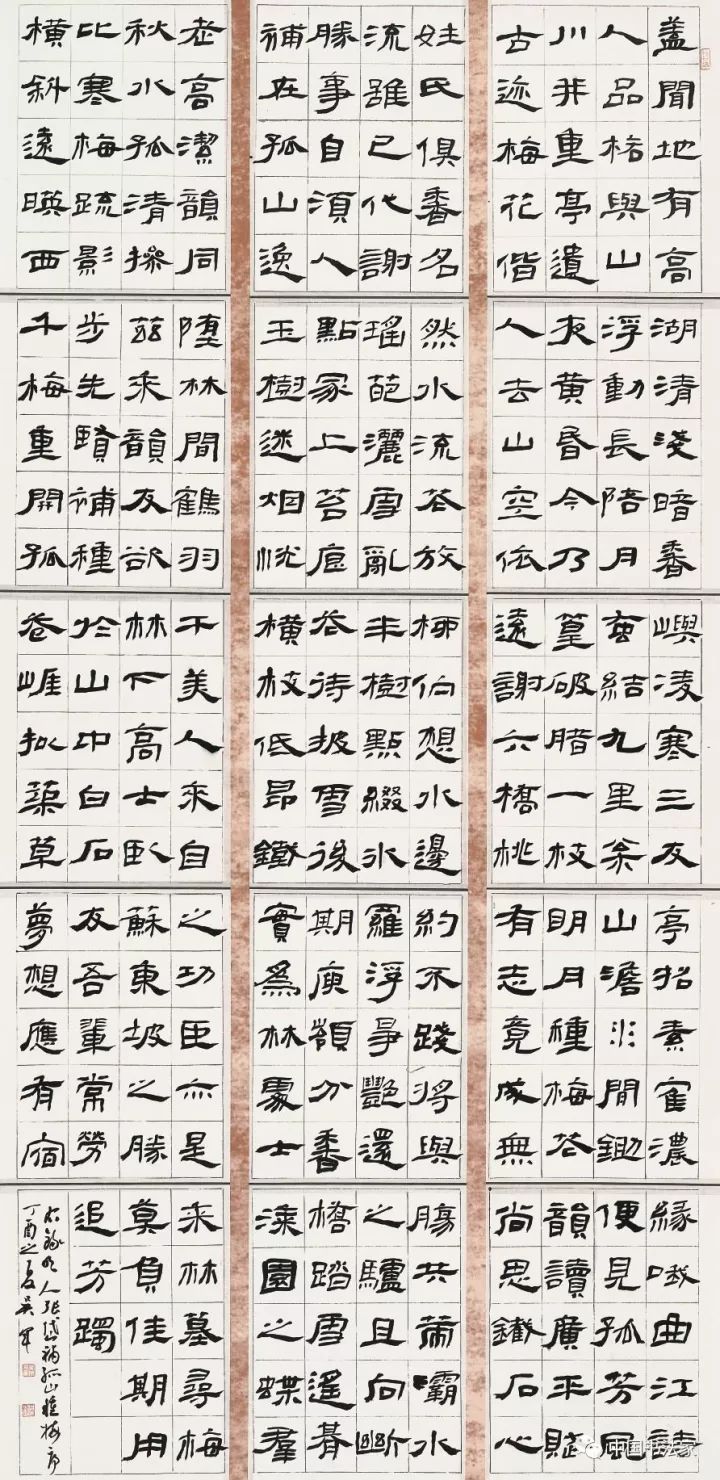 蓋聞地有高
人品格與山
川并重亭遺
古迹梅花偕
姓氏俱香名
流雖已代謝
勝事自須人
補在孤山逸
老高潔韻同
秋水孤清操
比寒梅疏影
橫斜遠暎西
湖清淺暗香
浮動長陪月
夜黃昏今乃
人去山空依
然水流花放
瑤葩灑雪亂
點冢上苔痕
玉樹迷烟恍
墮林間鶴羽
茲來韻友欲
步先賢補種
千梅重開孤
嶼凌寒三友
蚤結九里枀
篁破腊一枝
遠謝六橋桃
柳伫想水邊
半樹點綴冰
花待披雪後
橫枝低昂鐵
干美人來自
林下高士臥
於山中白石
蒼崖擬築草
亭招素寉濃
山澹水間鋤
明月種梅花
有志竟成無
約不踐將與
羅浮爭艷還
期庾嶺分香
實爲林處士
之功臣亦是
蘇東坡之勝
友吾輩常勞
夢想應有宿
緣哦曲江詩
便見孤芳風
韻讀廣平賦
尚思鐵石心
腸共策灞水
之驢且向斷
橋踏雪遙
漆園之蝶羣
来林墓尋梅
莫負佳期用
追芳躅
右錄明人張岱補孤山種梅序
丁酉之夏吳軍
中国书法家